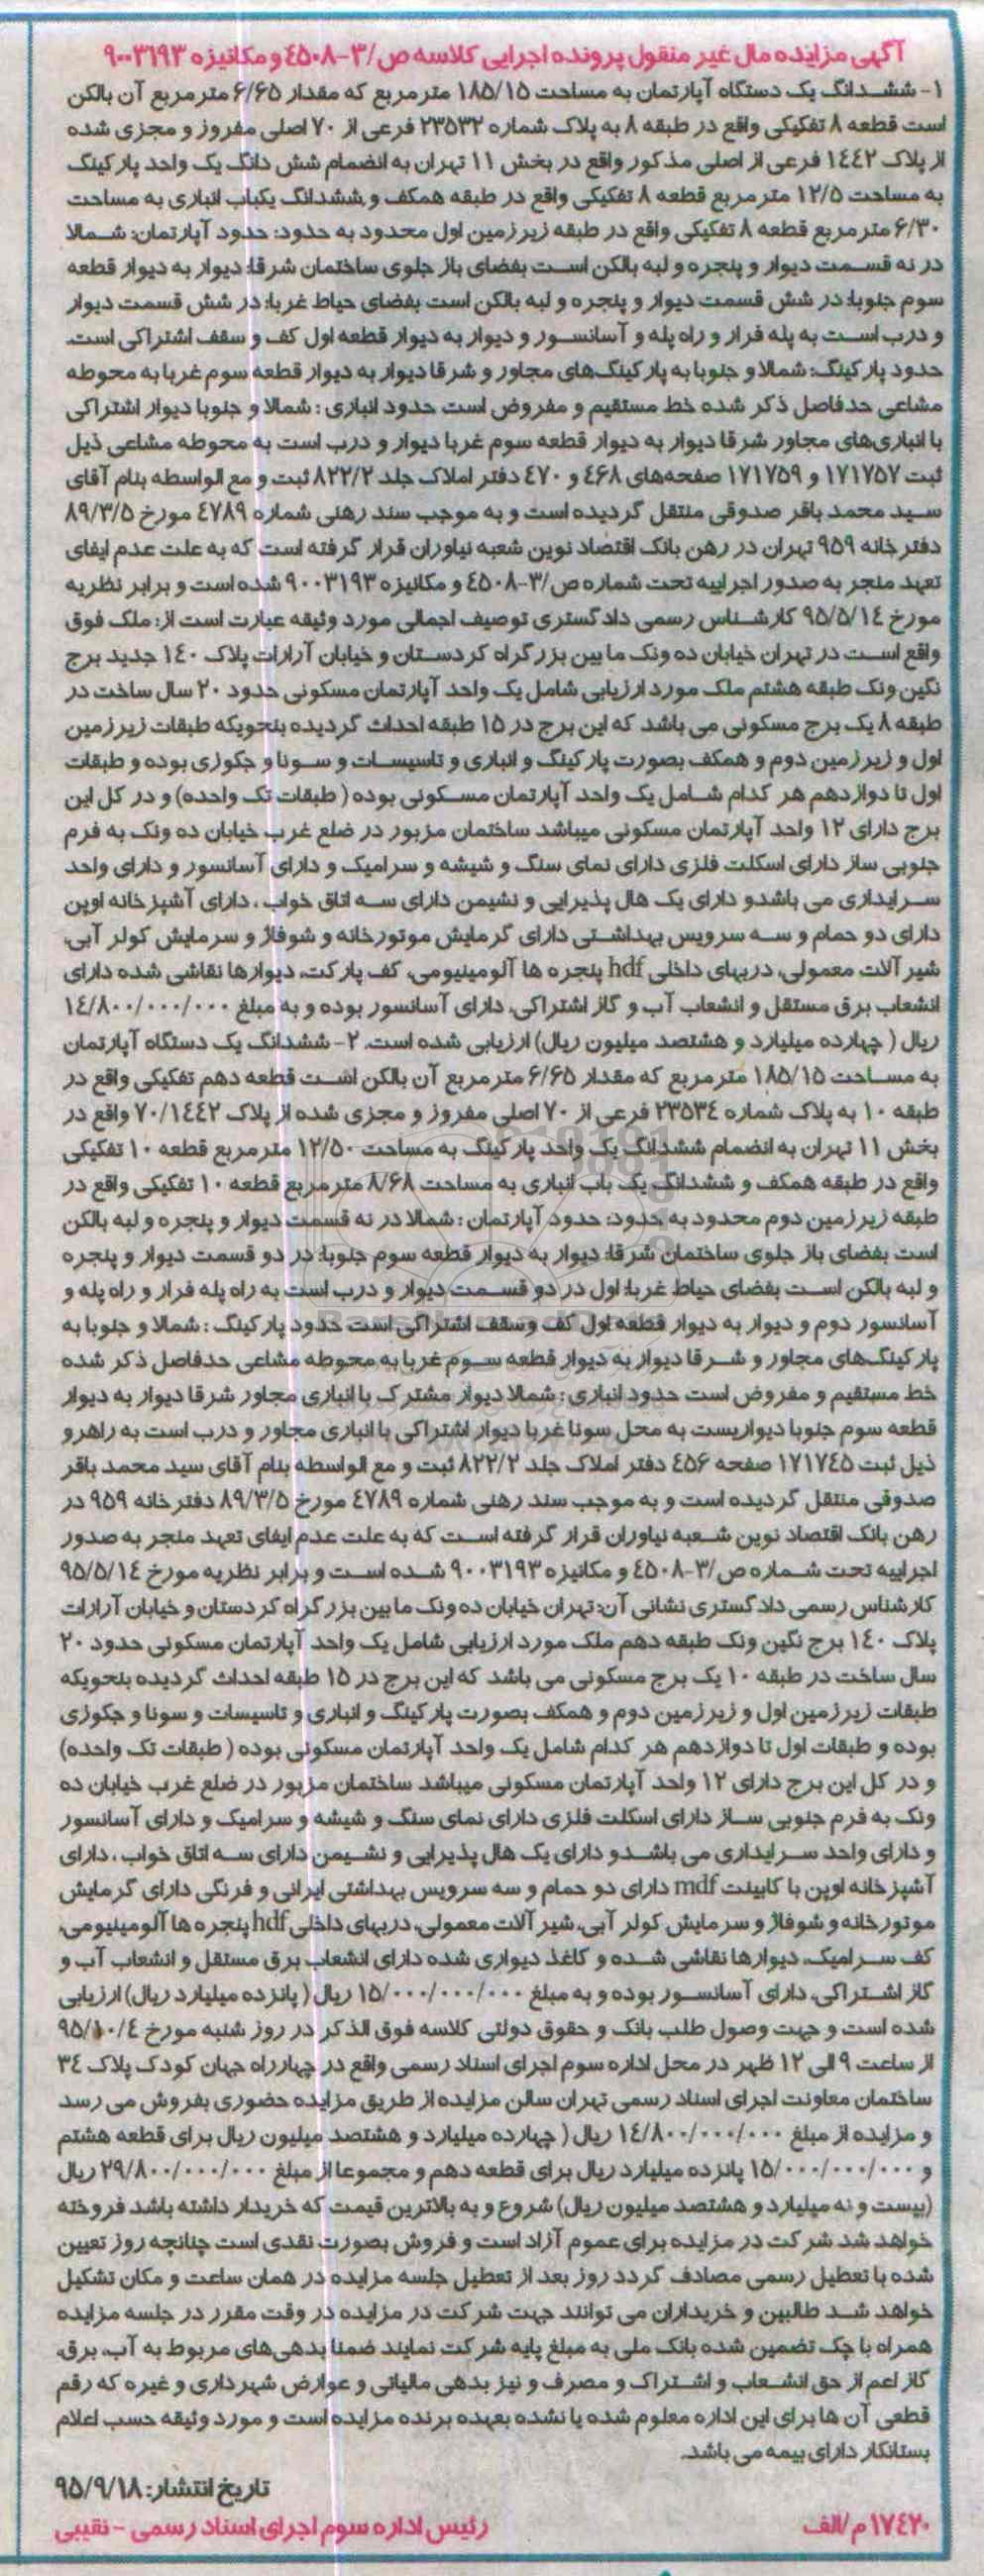 آگهی مزایده مال غیر منقول پرونده اجرایی کلاسه ص/۳-۴۵۰۸ و مکانیزه ۹۰۰۳۱۹۳
۱- ششدانگ یک دستگاه آپارتمان به مساحت ۱۸۵/۱۵ مترمربع که مقدار ۶/۶۵ مترمربع آن بالکن
است قطعه ۸ تفکیکی واقع در طبقه ۸ به پلاک شماره ۲۳۵۳۲ فرعی از ۷۰ اصلی مفروز و مجزی شده
از پلاک ۱۴۴۲ فرعی از اصلی مذکور واقع در بخش ۱۱ تهران به انضمام شش دانگ یک واحد پارکینگ
به مساحت ۱۲/۵ مترمربع قطعه ۸ تفکیکی واقع در طبقه همکف و ششدانگ یکباب انباری به مساحت
۶/۳۰ مترمربع قطعه ۸ تفکیکی واقع در طبقه زیرزمین اول محدود به حدود: حدود آپارتمان: شمالا
در نه قسمت دیوار و پنجره و لبه بالکن است بفضای باز جلوی ساختمان شرقا: دیوار به دیوار قطعه
سوم جنوبا: در شش قسمت دیوار و پنجره و لبه بالکن است بفضای حیاط غربا: در شش قسمت دیوار
و درب است به پله فرار و راه پله و آسانسور و دیوار به دیوار قطعه اول کف و سقف اشتراکی است.
حدود پارکینگ: شمالا و جنوبا به پارکینگ‌های مجاور و شرقا دیوار به دیوار قطعه سوم غربا به محوطه
مشاعی حدفاصل ذکر شده خط مستقیم و مفروض است حدود انباری: شمالا و جنوبا دیوار اشتراکی
با انباری‌های مجاور شرقا دیوار به دیوار قطعه سوم غربا دیوار و درب است به محوطه مشاعی ذیل
ثبت ۱۷۱۷۵۷ و ۱۷۱۷۵۹ صفحه‌های ۴۶۸ و ۴۷۰ دفتر املاک جلد ۸۲۲/۲ ثبت و مع الواسطه بنام آقای
سید محمد باقر صدوقی منتقل گردیده است و به موجب سند رهنی شماره ۴۷۸۹ مورخ ۸۹/۳/۵
دفترخانه ۹۵۹ تهران در رهن بانک اقتصاد نوین شعبه نیاوران قرار گرفته است که به علت عدم ایفای
تعهد منجر به صدور اجراییه تحت شماره ص/۳-۴۵۰۸ و مکانیزه ۹۰۰۳۱۹۳ شده است و برابر نظریه
مورخ ۹۵/۵/۱۴ کارشناس رسمی دادگستری توصیف اجمالی مورد وثیقه عبارت است از: ملک فوق
واقع است در تهران خیابان ده ونک ما بین بزرگراه کردستان و خیابان آرارات پلاک ۱۴۰ جدید برج
نگین ونک طبقه هشتم ملک مورد ارزیابی شامل یک واحد آپارتمان مسکونی حدود ۲۰ سال ساخت در
طبقه ۸ یک برج مسکونی می باشد که این برج در ۱۵ طبقه احداث گردیده بنحویکه طبقات زیرزمین
اول و زیرزمین دوم و همکف بصورت پارکینگ و انباری و تاسیسات و سونا و جکوزی بوده و طبقات
اول تا دوازدهم هر کدام شامل یک واحد آپارتمان مسکونی بوده (طبقات تک واحده) و در کل این
برج دارای ۱۲ واحد آپارتمان مسکونی میباشد ساختمان مزبور در ضلع غرب خیابان ده ونک به فرم
جنوبی ساز دارای اسکلت فلزی دارای نمای سنگ و شیشه و سرامیک و دارای آسانسور و دارای واحد
سرایداری می باشد و دارای یک هال پذیرایی و نشیمن دارای سه اتاق خواب، دارای آشپزخانه اوپن
دارای دو حمام و سه سرویس بهداشتی دارای گرمایش موتورخانه و شوفاژ و سرمایش کولر آبی،
شیرآلات معمولی، دربهای داخلی hdf پنجره ها آلومینیومی، کف پارکت، دیوارها نقاشی شده دارای
انشعاب برق مستقل و انشعاب آب و گاز اشتراکی، دارای آسانسور بوده و به مبلغ ۱۴/۸۰۰/۰۰۰/۰۰۰
ریال (چهارده میلیارد و هشتصد میلیون ریال) ارزیابی شده است. ۲- ششدانگ یک دستگاه آپارتمان
به مساحت ۱۸۵/۱۵ مترمربع که مقدار ۶/۶۵ مترمربع آن بالکن است قطعه دهم تفکیکی واقع در
طبقه ۱۰ به پلاک شماره ۲۳۵۳۴ فرعی از ۷۰ اصلی مفروز و مجزی شده از پلاک ۷۰/۱۴۴۲ واقع در
بخش ۱۱ تهران به انضمام ششدانگ یک واحد پارکینگ به مساحت ۱۲/۵۰ مترمربع قطعه ۱۰ تفکیکی
واقع در طبقه همکف و ششدانگ یک باب انباری به مساحت ۸/۶۸ مترمربع قطعه ۱۰ تفکیکی واقع در
طبقه زیرزمین دوم محدود به حدود: حدود آپارتمان: شمالا در نه قسمت دیوار و پنجره و لبه بالکن
است بفضای باز جلوی ساختمان شرقا: دیوار به دیوار قطعه سوم جنوبا: در دو قسمت دیوار و پنجره
و لبه بالکن است بفضای حیاط غربا: اول در دو قسمت دیوار و درب است به راه پله فرار و راه پله و
آسانسور دوم و دیوار به دیوار قطعه اول کف وسقف اشتراکی است حدود پارکینگ: شمالا و جنوبا به
پارکینگ‌های مجاور و شرقا دیوار به دیوار قطعه سوم غربا به محوطه مشاعی حدفاصل ذکر شده
خط مستقیم و مفروض است حدود انباری: شمالا دیوار مشترک با انباری مجاور شرقا دیوار به دیوار
قطعه سوم جنوبا دیواریست به محل سونا غربا دیوار اشتراکی با انباری مجاور و درب است به راهرو
ذیل ثبت ۱۷۱۷۴۵ صفحه ۴۵۶ دفتر املاک جلد ۸۲۲/۲ ثبت و مع الواسطه بنام آقای سید محمد باقر
صدوقی منتقل گردیده است و به موجب سند رهنی شماره ۴۷۸۹ مورخ ۸۹/۳/۵ دفترخانه ۹۵۹ در
رهن بانک اقتصاد نوین شعبه نیاوران قرار گرفته است که به علت عدم ایفای تعهد منجر به صدور
اجراییه تحت شماره ص/۳-۴۵۰۸ و مکانیزه ۹۰۰۳۱۹۳ شده است و برابر نظریه مورخ ۹۵/۵/۱۴
کارشناس رسمی دادگستری نشانی آن: تهران خیابان ده ونک ما بین بزرگراه کردستان و خیابان آرارات
پلاک ۱۴۰ برج نگین ونک طبقه دهم ملک مورد ارزیابی شامل یک واحد آپارتمان مسکونی حدود ۲۰
سال ساخت در طبقه ۱۰ یک برج مسکونی می باشد که این برج در ۱۵ طبقه احداث گردیده بنحویکه
طبقات زیرزمین اول و زیرزمین دوم و همکف بصورت پارکینگ و انباری و تاسیسات و سونا و جکوزی
بوده و طبقات اول تا دوازدهم هر کدام شامل یک واحد آپارتمان مسکونی بوده (طبقات تک واحده)
و در کل این برج دارای ۱۲ واحد آپارتمان مسکونی میباشد ساختمان مزبور در ضلع غرب خیابان ده
ونک به فرم جنوبی ساز دارای اسکلت فلزی دارای نمای سنگ و شیشه و سرامیک و دارای آسانسور
و دارای واحد سرایداری می باشد و دارای یک هال پذیرایی و نشیمن دارای سه اتاق خواب، دارای
آشپزخانه اوپن با کابینت mdf دارای دو حمام و سه سرویس بهداشتی ایرانی و فرنگی دارای گرمایش
موتورخانه و شوفاژ و سرمایش کولر آبی، شیرآلات معمولی، دربهای داخلی hdf پنجره ها آلومینیومی،
کف سرامیک، دیوارها نقاشی شده و کاغذ دیواری شده دارای انشعاب برق مستقل و انشعاب آب و
گاز اشتراکی، دارای آسانسور بوده و به مبلغ ۱۵/۰۰۰/۰۰۰/۰۰۰ ریال (پانزده میلیارد ریال) ارزیابی
شده است و جهت وصول طلب بانک و حقوق دولتی کلاسه فوق الذکر در روز شنبه مورخ ۹۵/۱۰/۴
از ساعت ۹ الی ۱۲ ظهر در محل اداره سوم اجرای اسناد رسمی واقع در چهارراه جهان کودک پلاک ۳۴
ساختمان معاونت اجرای اسناد رسمی تهران سالن مزایده از طریق مزایده حضوری بفروش می رسد
و مزایده از مبلغ ۱۴/۸۰۰/۰۰۰/۰۰۰ ریال (چهارده میلیارد و هشتصد میلیون ریال برای قطعه هشتم
و ۱۵/۰۰۰/۰۰۰/۰۰۰ پانزده میلیارد ریال برای قطعه دهم و مجموعا از مبلغ ۲۹/۸۰۰/۰۰۰/۰۰۰ ریال
(بیست و نه میلیارد و هشتصد میلیون ریال) شروع و به بالاترین قیمت که خریدار داشته باشد فروخته
خواهد شد شرکت در مزایده برای عموم آزاد است و فروش بصورت نقدی است چنانچه روز تعیین
شده با تعطیل رسمی مصادف گردد روز بعد از تعطیل جلسه مزایده در همان ساعت و مکان تشکیل
خواهد شد طالبین و خریداران می توانند جهت شرکت در مزایده در وقت مقرر در جلسه مزایده
همراه با چک تضمین شده بانک ملی به مبلغ پایه شرکت نمایند ضمنا بدهی‌های مربوط به آب، برق،
گاز اعم از حق انشعاب و اشتراک و مصرف و نیز بدهی مالیاتی و عوارض شهرداری و غیره که رقم
قطعی آن ها برای این اداره معلوم شده یا نشده بعهده برنده مزایده است و مورد وثیقه حسب اعلام
بستانکار دارای بیمه می باشد.
تاریخ انتشار: ۹۵/۹/۱۸
۱۷۴۲۰م/الف رئیس اداره سوم اجرای اسناد رسمی - نقیبی